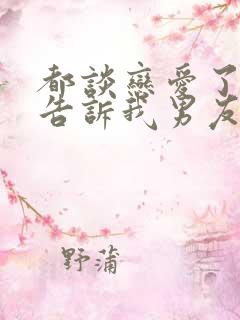 都談戀愛了
告訴我男友
野蒲